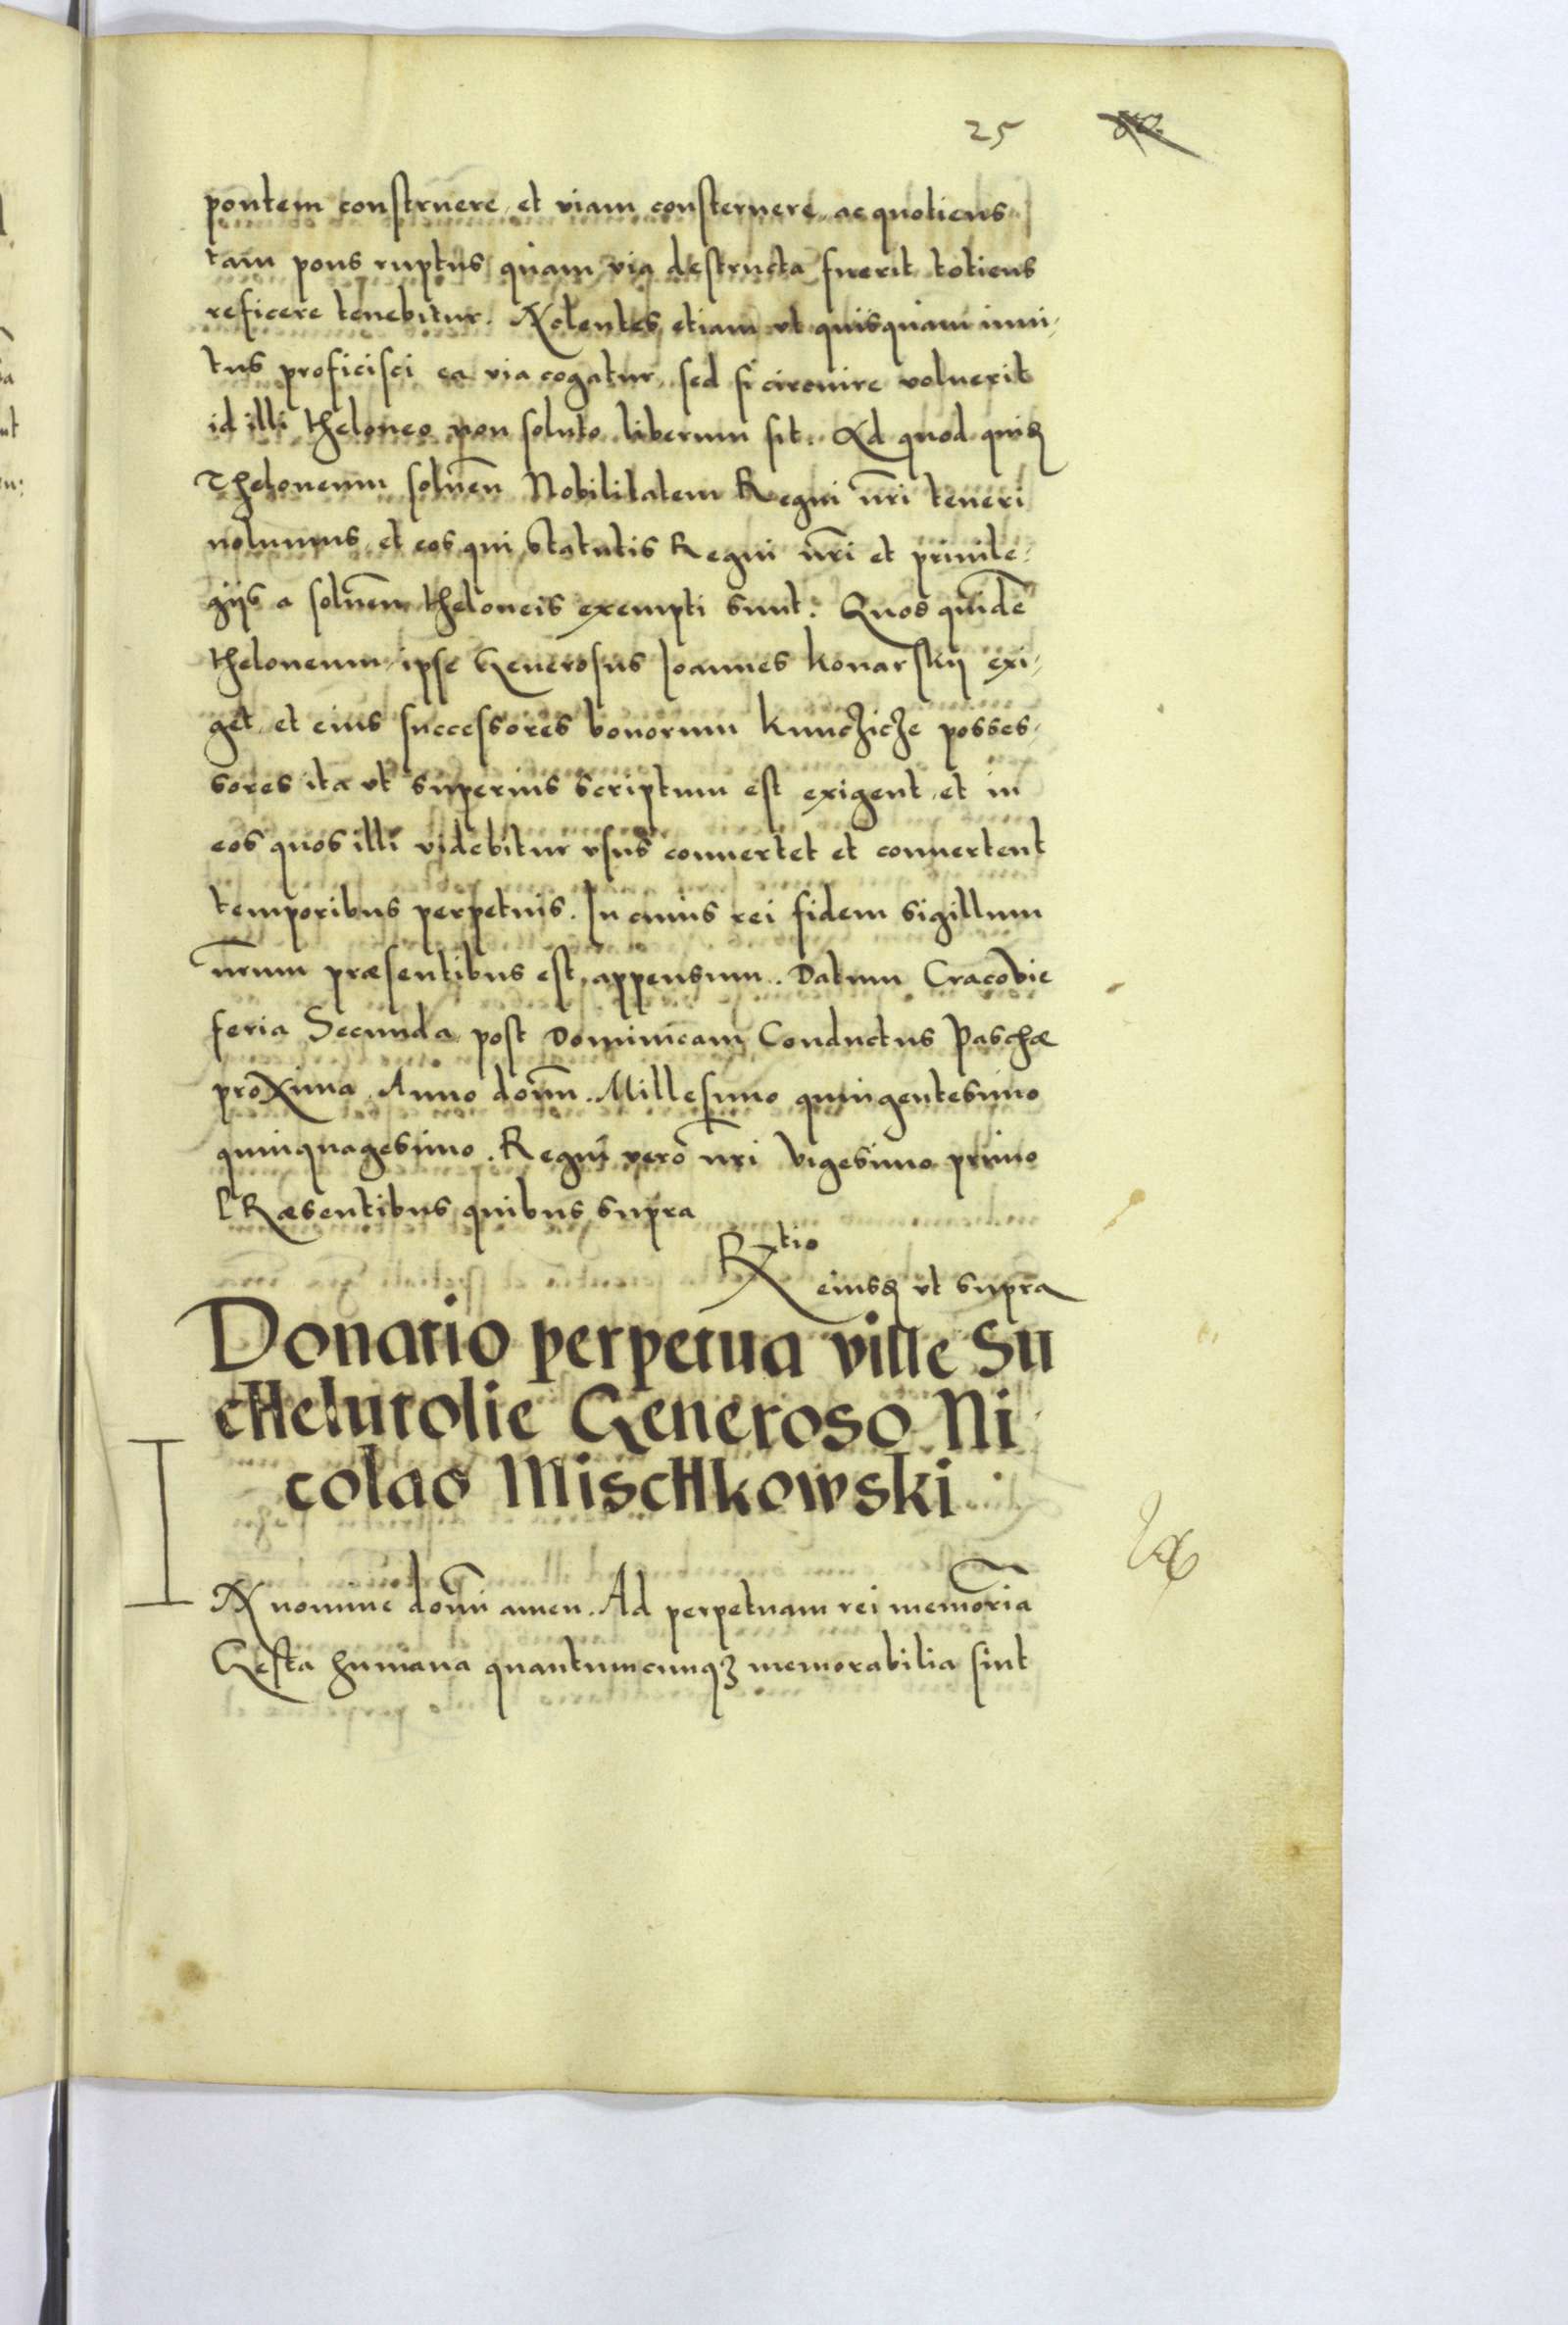 25
pontem construere et viam consternere ac quotiens
tam pons ruptus quam via destructa fuerit totiens
reficere tenebitur. Nolentes etiam vt quisquam inui-
tus proficisci ea via cogatur, sed si circuire voluerit
id illi theloneo non soluto liberum sit. Ad quod quidē
Theloneum soluen̄ Nobilitatem Regni nr̄i teneri
nolumus et eos qui statutis Regni nr̄i et priuile-
gijs a soluen̄ theloneis exempti sunt. Quos quidē
theloneum ipse Generosus Ioannes Konarskij exi-
get et eius successores bonorum Kunczicze posses-
sores ita vt superius scriptum est exigent et in
eos quos illi videbitur vsus conuertet et conuertent
temporibus perpetuis. In cuius rei fidem sigillum
nr̄um præsentibus est appensum. Datum Cracovie
feria Secunda post Dominicam Conductus Paschæ
proxima Anno domi. Millesimo quingentesimo
quinquagesimo. Regni vero nr̄i vigesimo primo
PRæsentibus quibus supra
Rtio
eiusd vt supra
Donatio perpetua ville Su
chelutolie Generoso Ni-
colao Mischkowski
I
N nomine domi amen. Ad perpetuam rei memoria
Gesta humana quantumcunqꝫ memorabilia sint